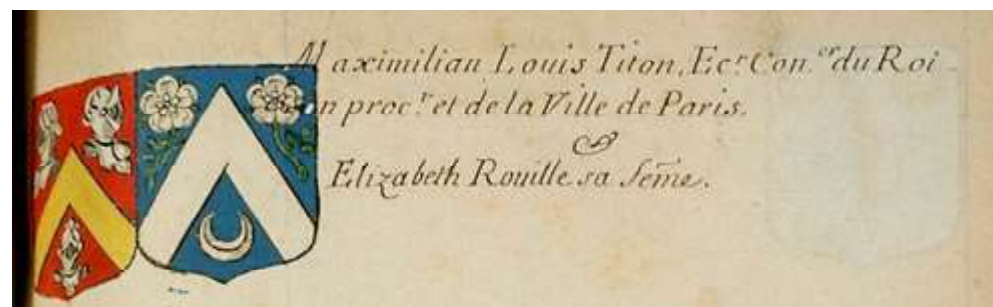 Maximilian Louis Titon, Ecr. Con.er du Roi
on procr. et de la Ville de Paris.
&
Elizabeth Rouille sa feme.